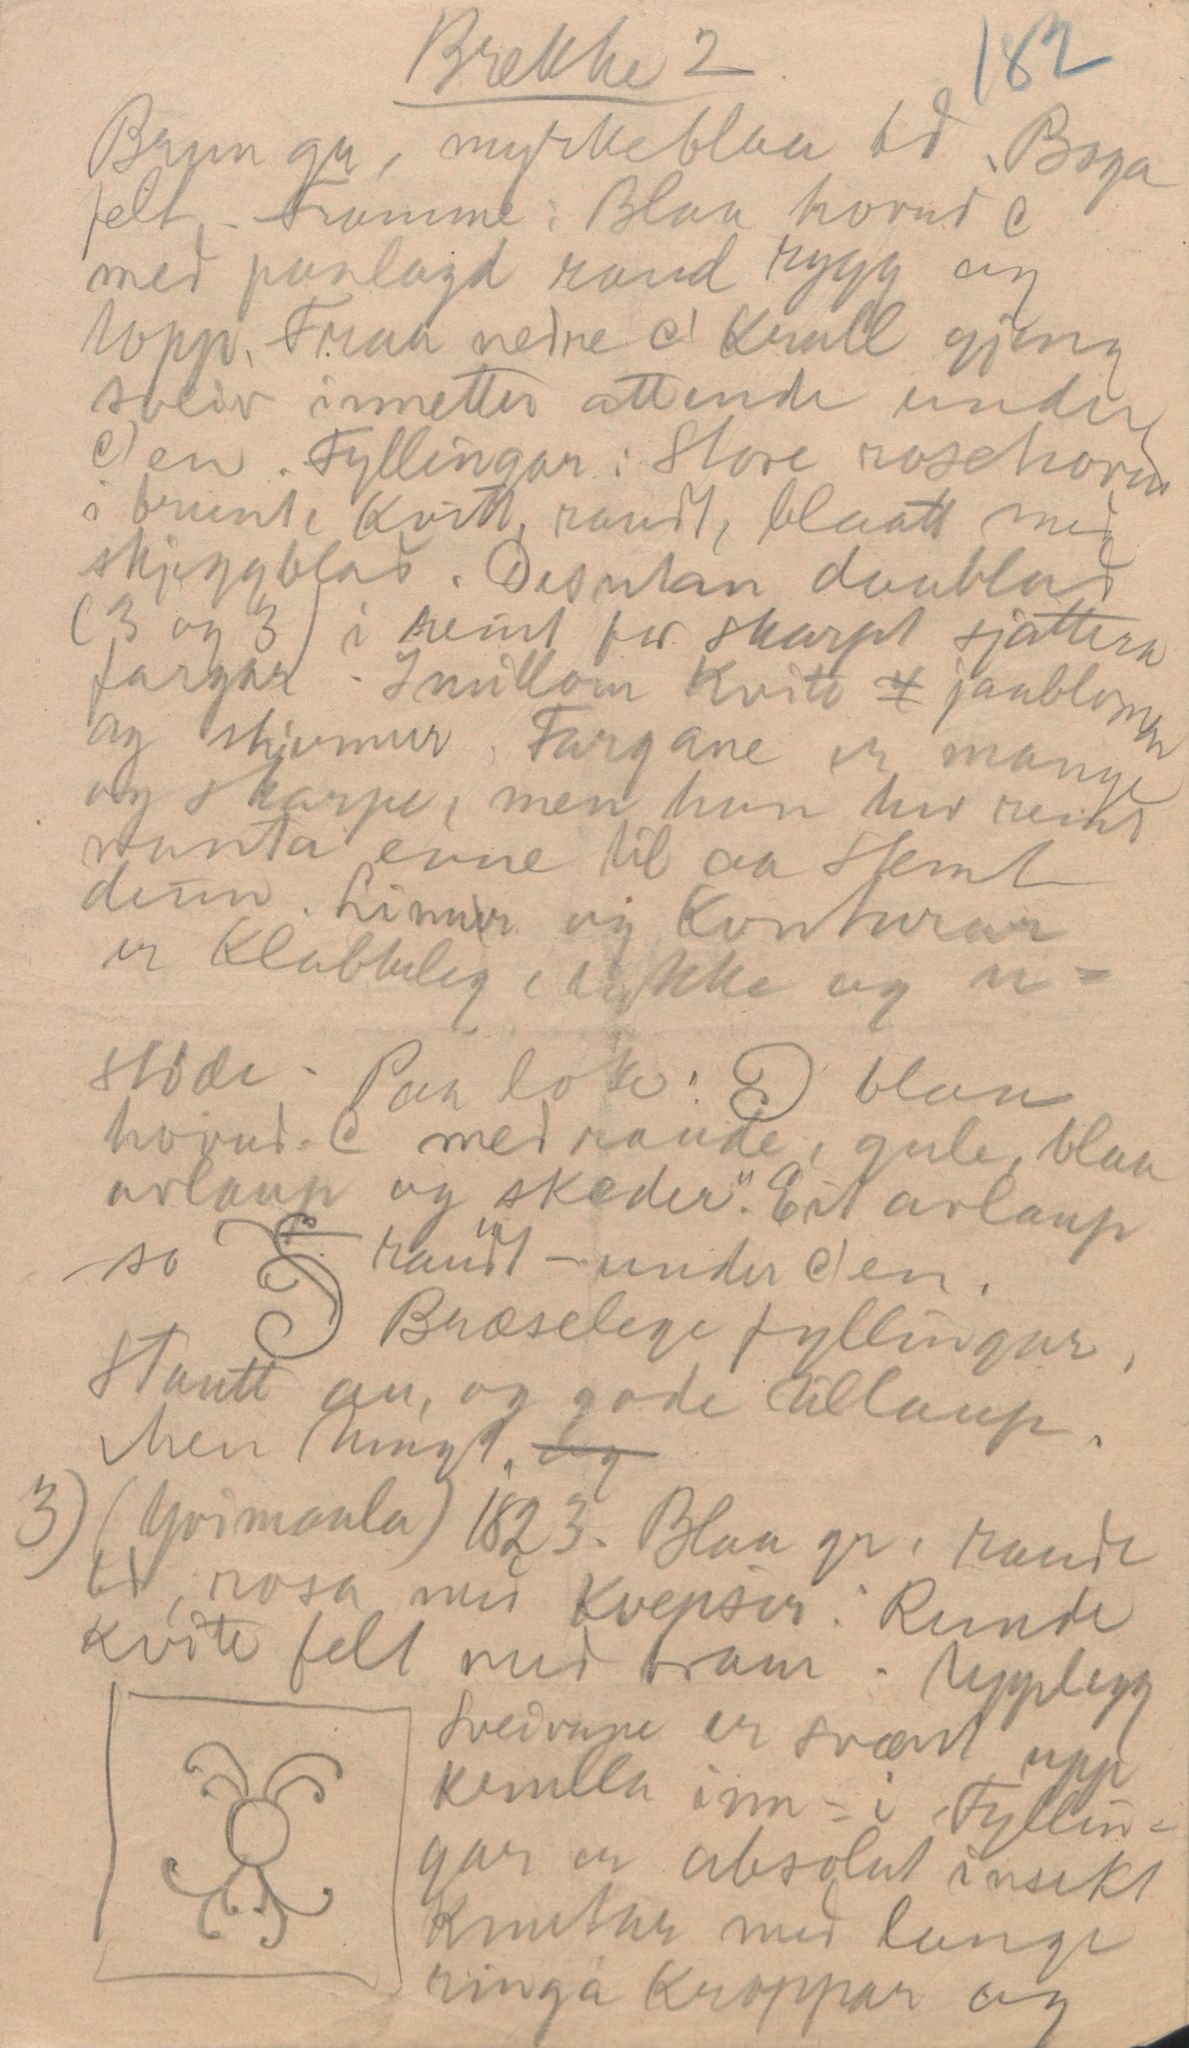 Brekke 2
182
Brun gr, myrkeblaa bd. Boga
felt. Framme: Blaa hovud C
med paalagd raud rygg og
topp. Fraa nedre C' krull gjeng
sveiv innetter attende under
C'en. Fyllingar: Store rosehovud
i brunt, kvitt, raudt, blaatt med
skjeggblad. Desutan daublad
(3 og 3) i reint for skarpt sjattera
fargar. Imillom kvite 4 jaablomar
og skivmur. Fargane er mange
og skarpe, men han hev reint
vanta evne til aa stemt
deim. Linur og konturar
er klabbeleg, tykke og u-
støde. Paa loke: blaa
hovud-C med raude, gule, blaa
avlaup og "skæder". Eit avlaup
so raudt - under C'en.
Bræselege fyllingar,
Stautt an, og gode tillaup.
Men tungt.
3) (Yvimaala) 1823. Blaa gr, raude
bd, rosa med kvepsir. Runde
kvite felt med bram. Upplegg
Sveivane er svært upp
krulla inn - i Fyllin-
gar er absolut insekt
knutar med lange
ringa kroppar og